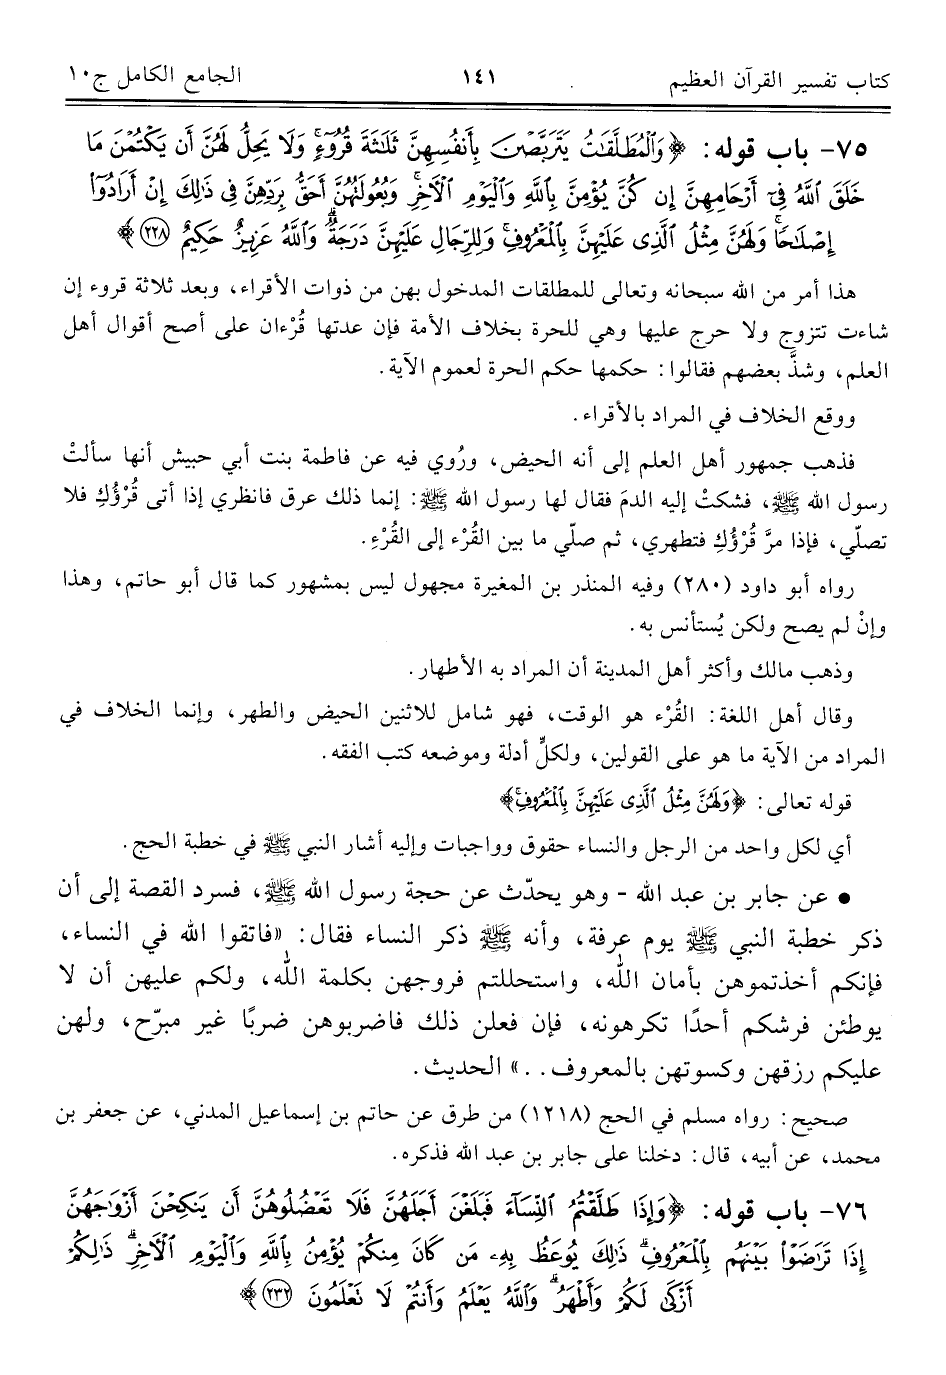 كتاب تفسير القرآن العظيم ١٤١ الجامع الكامل ج١٠
٧٥- باب قوله: ﴿وَٱلْمُطَلَّقَٰتُ يَتَرَبَّصْنَ بِأَنفُسِهِنَّ ثَلَٰثَةَ قُرُوٓءٍ ۚ وَلَا يَحِلُّ لَهُنَّ أَن يَكْتُمْنَ مَا
خَلَقَ ٱللَّهُ فِىٓ أَرْحَامِهِنَّ إِن كُنَّ يُؤْمِنَّ بِٱللَّهِ وَٱلْيَوْمِ ٱلْءَاخِرِ ۚ وَبُعُولَتُهُنَّ أَحَقُّ بِرَدِّهِنَّ فِى ذَٰلِكَ إِنْ أَرَادُوٓا۟
إِصْلَٰحًا ۚ وَلَهُنَّ مِثْلُ ٱلَّذِى عَلَيْهِنَّ بِٱلْمَعْرُوفِ ۚ وَلِلرِّجَالِ عَلَيْهِنَّ دَرَجَةٌ ۗ وَٱللَّهُ عَزِيزٌ حَكِيمٌ ٢٢٨﴾
هذا أمر من الله سبحانه وتعالى للمطلقات المدخول بهن من ذوات الأقراء، وبعد ثلاثة قروء إن
شاءت تتزوج ولا حرج عليها وهي للحرة بخلاف الأمة فإن عدتها قُرْءان على أصح أقوال أهل
العلم، وشذَّ بعضهم فقالوا: حكمها حكم الحرة لعموم الآية.
ووقع الخلاف في المراد بالأقراء.
فذهب جمهور أهل العلم إلى أنه الحيض، ورُوي فيه عن فاطمة بنت أبي حبيش أنها سألتْ
رسول الله ﷺ، فشكتْ إليه الدمَ فقال لها رسول الله ﷺ: إنما ذلك عرق فانظري إذا أتى قُرْؤُكِ فلا
تصلّي، فإذا مرَّ قُرْؤُكِ فتطهري، ثم صلّي ما بين القُرْء إلى القُرْءِ.
رواه أبو داود (٢٨٠) وفيه المنذر بن المغيرة مجهول ليس بمشهور كما قال أبو حاتم، وهذا
وإنْ لم يصح ولكن يُستأنس به.
وذهب مالك وأكثر أهل المدينة أن المراد به الأطهار.
وقال أهل اللغة: القُرْء هو الوقت، فهو شامل للاثنين الحيض والطهر، وإنما الخلاف في
المراد من الآية ما هو على القولين، ولكلٍّ أدلة وموضعه كتب الفقه.
قوله تعالى: ﴿وَلَهُنَّ مِثْلُ ٱلَّذِى عَلَيْهِنَّ بِٱلْمَعْرُوفِ ۚ﴾
أي لكل واحد من الرجل والنساء حقوق وواجبات وإليه أشار النبي ﷺ في خطبة الحج.
● عن جابر بن عبد الله - وهو يحدّث عن حجة رسول الله ﷺ، فسرد القصة إلى أن
ذكر خطبة النبي ﷺ يوم عرفة، وأنه ﷺ ذكر النساء فقال: «فاتقوا الله في النساء،
فإنكم أخذتموهن بأمان الله، واستحللتم فروجهن بكلمة الله، ولكم عليهن أن لا
يوطئن فرشكم أحدًا تكرهونه، فإن فعلن ذلك فاضربوهن ضربًا غير مبرّح، ولهن
عليكم رزقهن وكسوتهن بالمعروف. .» الحديث.
صحيح: رواه مسلم في الحج (١٢١٨) من طرق عن حاتم بن إسماعيل المدني، عن جعفر بن
محمد، عن أبيه، قال: دخلنا على جابر بن عبد الله فذكره.
٧٦- باب قوله: ﴿وَإِذَا طَلَّقْتُمُ ٱلنِّسَآءَ فَبَلَغْنَ أَجَلَهُنَّ فَلَا تَعْضُلُوهُنَّ أَن يَنكِحْنَ أَزْوَٰجَهُنَّ
إِذَا تَرَٰضَوْا۟ بَيْنَهُم بِٱلْمَعْرُوفِ ۗ ذَٰلِكَ يُوعَظُ بِهِۦ مَن كَانَ مِنكُمْ يُؤْمِنُ بِٱللَّهِ وَٱلْيَوْمِ ٱلْءَاخِرِ ۗ ذَٰلِكُمْ
أَزْكَىٰ لَكُمْ وَأَطْهَرُ ۗ وَٱللَّهُ يَعْلَمُ وَأَنتُمْ لَا تَعْلَمُونَ ٢٣٢﴾